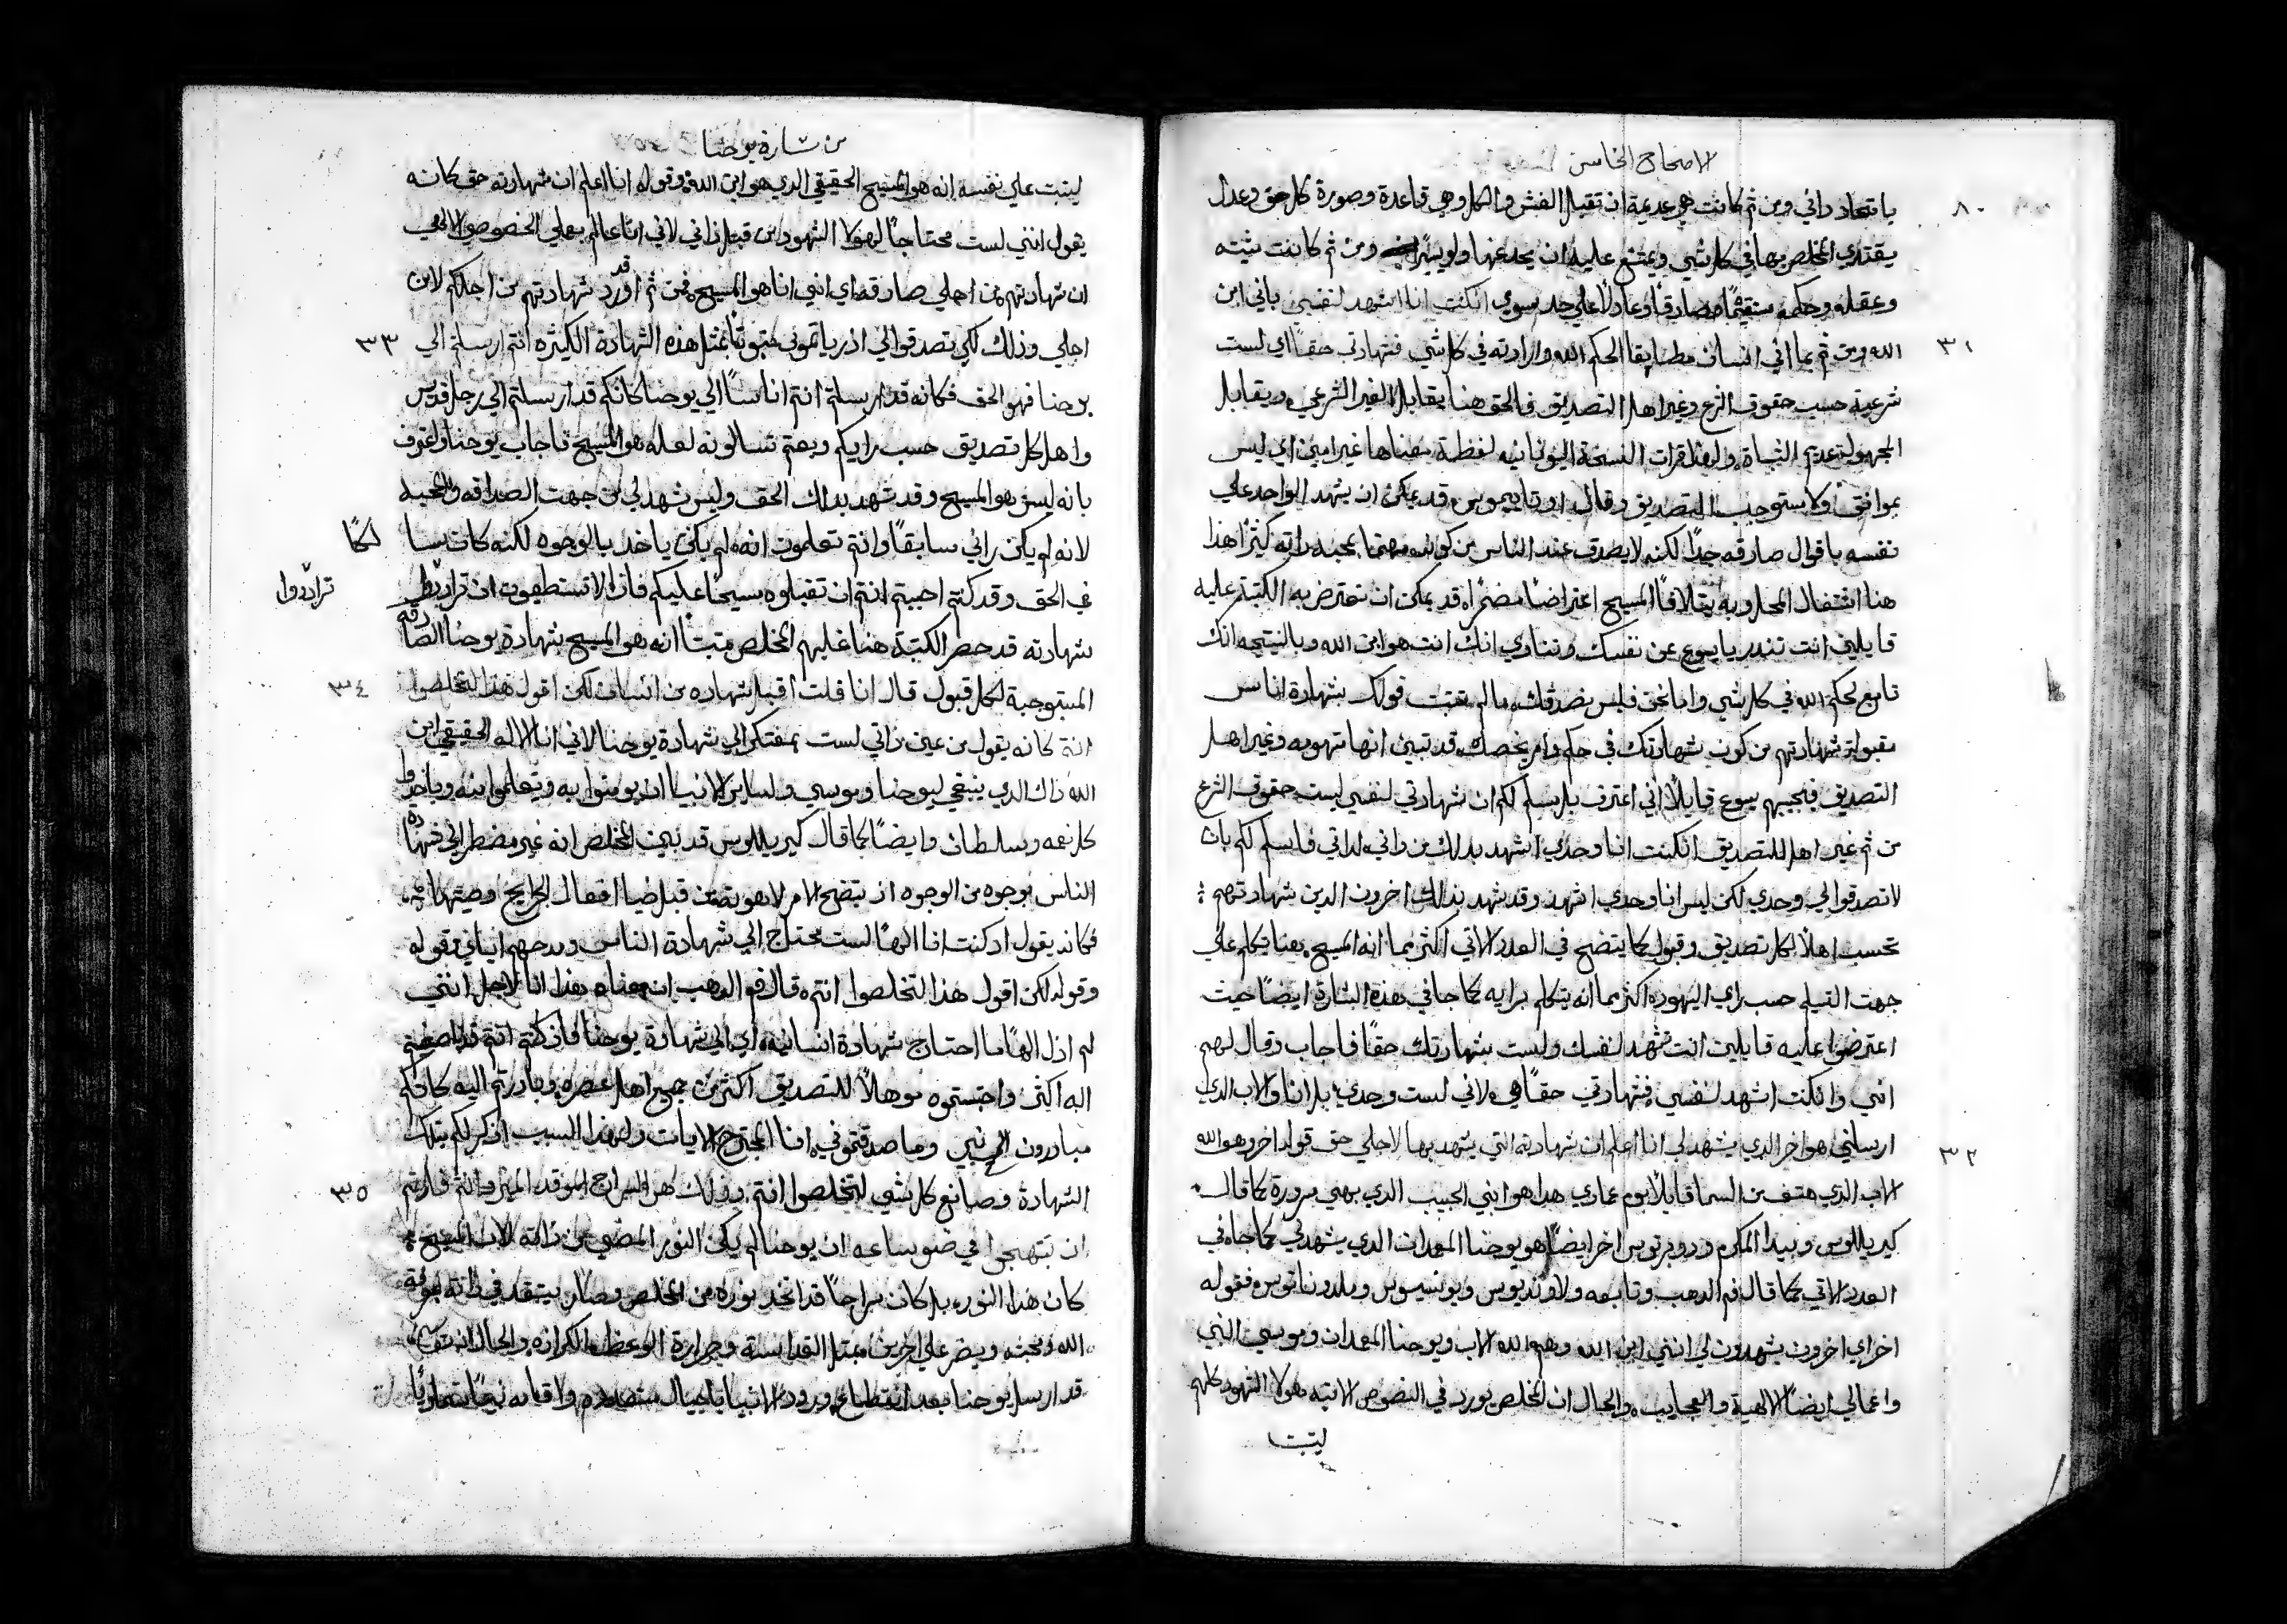 الاصحاح الخامس
٨٠
باتحاد ذاتي ومن ثم كانت هي عديمة ان تقبل الغش والكل وهي قاعدة وصورة كل حق وعدل
يقتدي المخلص بها في كل شي ويمتنع عليه ان يحد عنها ولو يسيرًا ومن ثم كانت نيته
وعقله وحكمه مستقيمًا صادقًا وعادلًا علي حد سوي انكنت انا اشهد لنفسي باني ابن
٣١
الله ومن ثم بما اني انسان مطابقا لحكم الله وارادته في كل شي فشهادتي حقًا اي لست
شرعية حسب حقوق الشرع وغير اهل التصديق فالحق هنا يقابل الغير الشرعي ويقابل
المجهول وعديم الثباة ولهذا قرات النسخة اليونانيه لفظة معناها غير امين اي ليس
بموافق ولا مستوجب التصديق وقال اوتاييموس قد يمكن ان يشهد الواحد علي
نفسه باقوال صادقه جدًا لكنه لا يصدق عند الناس من كونه متهمًا بمحبة ذاته كثيرًا هذا
هنا انتقال المحاروبه يتلافا المسيح اعتراضًا مضمراه قد يمكن ان تعترض به الكتبة عليه
قايلين انت تنذر يا يسوع عن نفسك وتنادي انك انت هو ابن الله وبالنتيجه انك
تابع لحكم الله في كل شي واما نحن فليس نصدقك ما لم تثبت قولك بشهادة اناس
مقبولة شهادتهم من كون شهادتك في حكم وامر يخصك قد تبين انها متهومه وغير اهل
التصديق فيجيبهم يسوع قايلًا اني اعترف بل اسلم لكم ان شهادتي لنفسي ليست حقوق الشرع
من ثم غير اهل للتصديق انكنت انا وحدي اشهد بذلك من ذاتي لذاتي فاسلم لكم بان
لا تصدقوا لي وحدي لكن ليس انا وحدي اشهد وقد شهد بذلك اخرون الذين شهادتهم
تحسب اهلًا لكل تصديق وقبول كما يتضح في العدد الاتي اكثر بما انه المسيح بهنا يتكلم علي
جهت التسليم حسب راي اليهود اكثر مما انه يتكلم برايه كما جا في هذه البشارة ايضًا حيث
اعترضوا عليه قايلين انت تشهد لنفسك وليست شهادتك حقًا فاجاب وقال لهم
اني وانكنت اشهد لنفسي فشهادتي حقًا هي لاني لست وحدي بل انا والاب الذي
٣٢
ارسلني هو اخر الذي يشهد لي انا اعلم ان شهادته التي يشهد بها لاجلي حق قوله اخر وهو الله
الاب الذي هتف من السما قايلًا يوم عمادي هذا هو ابني الحبيب الذي به سررت كما قال
كيريللوس وبيدا المكرم وروبرتوس اخر ايضًا هو يوحنا المعمدان الذي يشهد لي كما جاه في
العدد الاتي كما قال فم الذهب وتابعه ولاونديوس ويونسيوس وملدوناتوس فقوله
اخر اي اخرون يشهدون لي انني ابن الله وهم الله الاب ويوحنا المعمدان وموسي النبي
واعمالي ايضًا الالهية والعجايب والحال ان المخلص يورد في النصوص الاتيه هولا الشهود كلهم
ليثبت
من بشارة يوحنا
ليثبت علي نفسه انه هو المسيح الحقيقي الذي هو ابن الله وقوله انا اعلم ان شهادته حق كانه
يقول انني لست محتاجًا لهولا الشهود من قبل ذاتي لاني انا عالم بعلي الخصوصي الالهي
ان شهادتهم من اجلي صادقه اي اني انا هو المسيح فمن ثم قد اورد شهادتهم من اجلكم لا من
٣٣
اجلي وذلك لكي تصدقوا لي اذ رياتموني مثبوتًا بمثل هذه الشهادة الكثيره انتم ارسلتم الي
يوحنا فهو الحق فكانه قد ارسلتم انتم اناسًا الي يوحنا كانكم قد ارسلتم الي رجل قديس
واهل كل تصديق حسب رايكم وبعتم تسالونه لعله هو المسيح فاجاب يوحنا واعترف
بانه ليس هو المسيح وقد شهد بذلك الحق وليس شهد لي من جهت الصداقه والمحبه
لانه لم يكن راني سابقًا وانتم تعلمون انه لم يكن ياخذ بالوجوه لكنه كان
في الحق وقد كنتم احببتم انتم ان تقبلوه مسيحًا عليكم فاذًا لا تستطيعون ان ترادّوا
ترادّوا
شهادته قد حصر الكتبة هنا عليهم المخلص مثبتًا انه هو المسيح بشهادة يوحنا الصادقه
٣٤
المستوجبة لكل قبول قال انا فلت اقبل شهاده من انسان لكن اقول هذا لتخلصوا
انتم كانه يقول من عين ذاتي لست بمفتكر الي شهادة يوحنا لاني انا الاله الحقيقي ابن
الله ذاك الذي ينبغي ليوحنا وموسي ولساير الانبيا ان يومنوا به ويتعلموا منه وياخذوا
كل نعمه وسلطان وايضًا كما قال كيريللوس قد بين المخلص انه غير مضطر الي شهادة
الناس بوجوه من الوجوه اذ يتضح الامر لاهوته من قبل ضيا افعال
فكانه يقول اذ كنت انا الهًا لست محتاج الي شهادة الناس ومدحهم اياني وقوله
وقوله لكن اقول هذا لتخلصوا انتم قال فم الذهب ان معناه هذا انا لاجل انني
لم ازل الهًا ما احتاج شهادة انسانيه اي الي شهادة يوحنا فاذ كنتم انتم قد اصغيتم
اليه اكثر واحسبتموه موهلًا للتصديق اكثر من جميع اهل عصره وبادرتم اليه كانكم
مبادرون الي نبي وما صدقتموني انا المجترح الايات ولهذا السبب اذكر لكم بتلك
٣٥
الشهادة وصانع كل شي لتخلصوا انتم وذلك هو السراج الموقد المنير وانتم فارتم
ان تبتهجوا في ضو ساعه ان يوحنا لم يكن النور المضي من ذاته لان المسيح
كان هذا النور بل كان سراجًا قد اتخذ نوره من المخلص وصار يتقد في ذاته بمعرفة
الله ومحبته ويضو علي اخرين بمثل القداسة وحرارة الوعظ والكرازه والحال ان
قد ارسل يوحنا بعد انقطاع ورود الانبيا باجيال متعدده واقامه نبيًا سماويًا